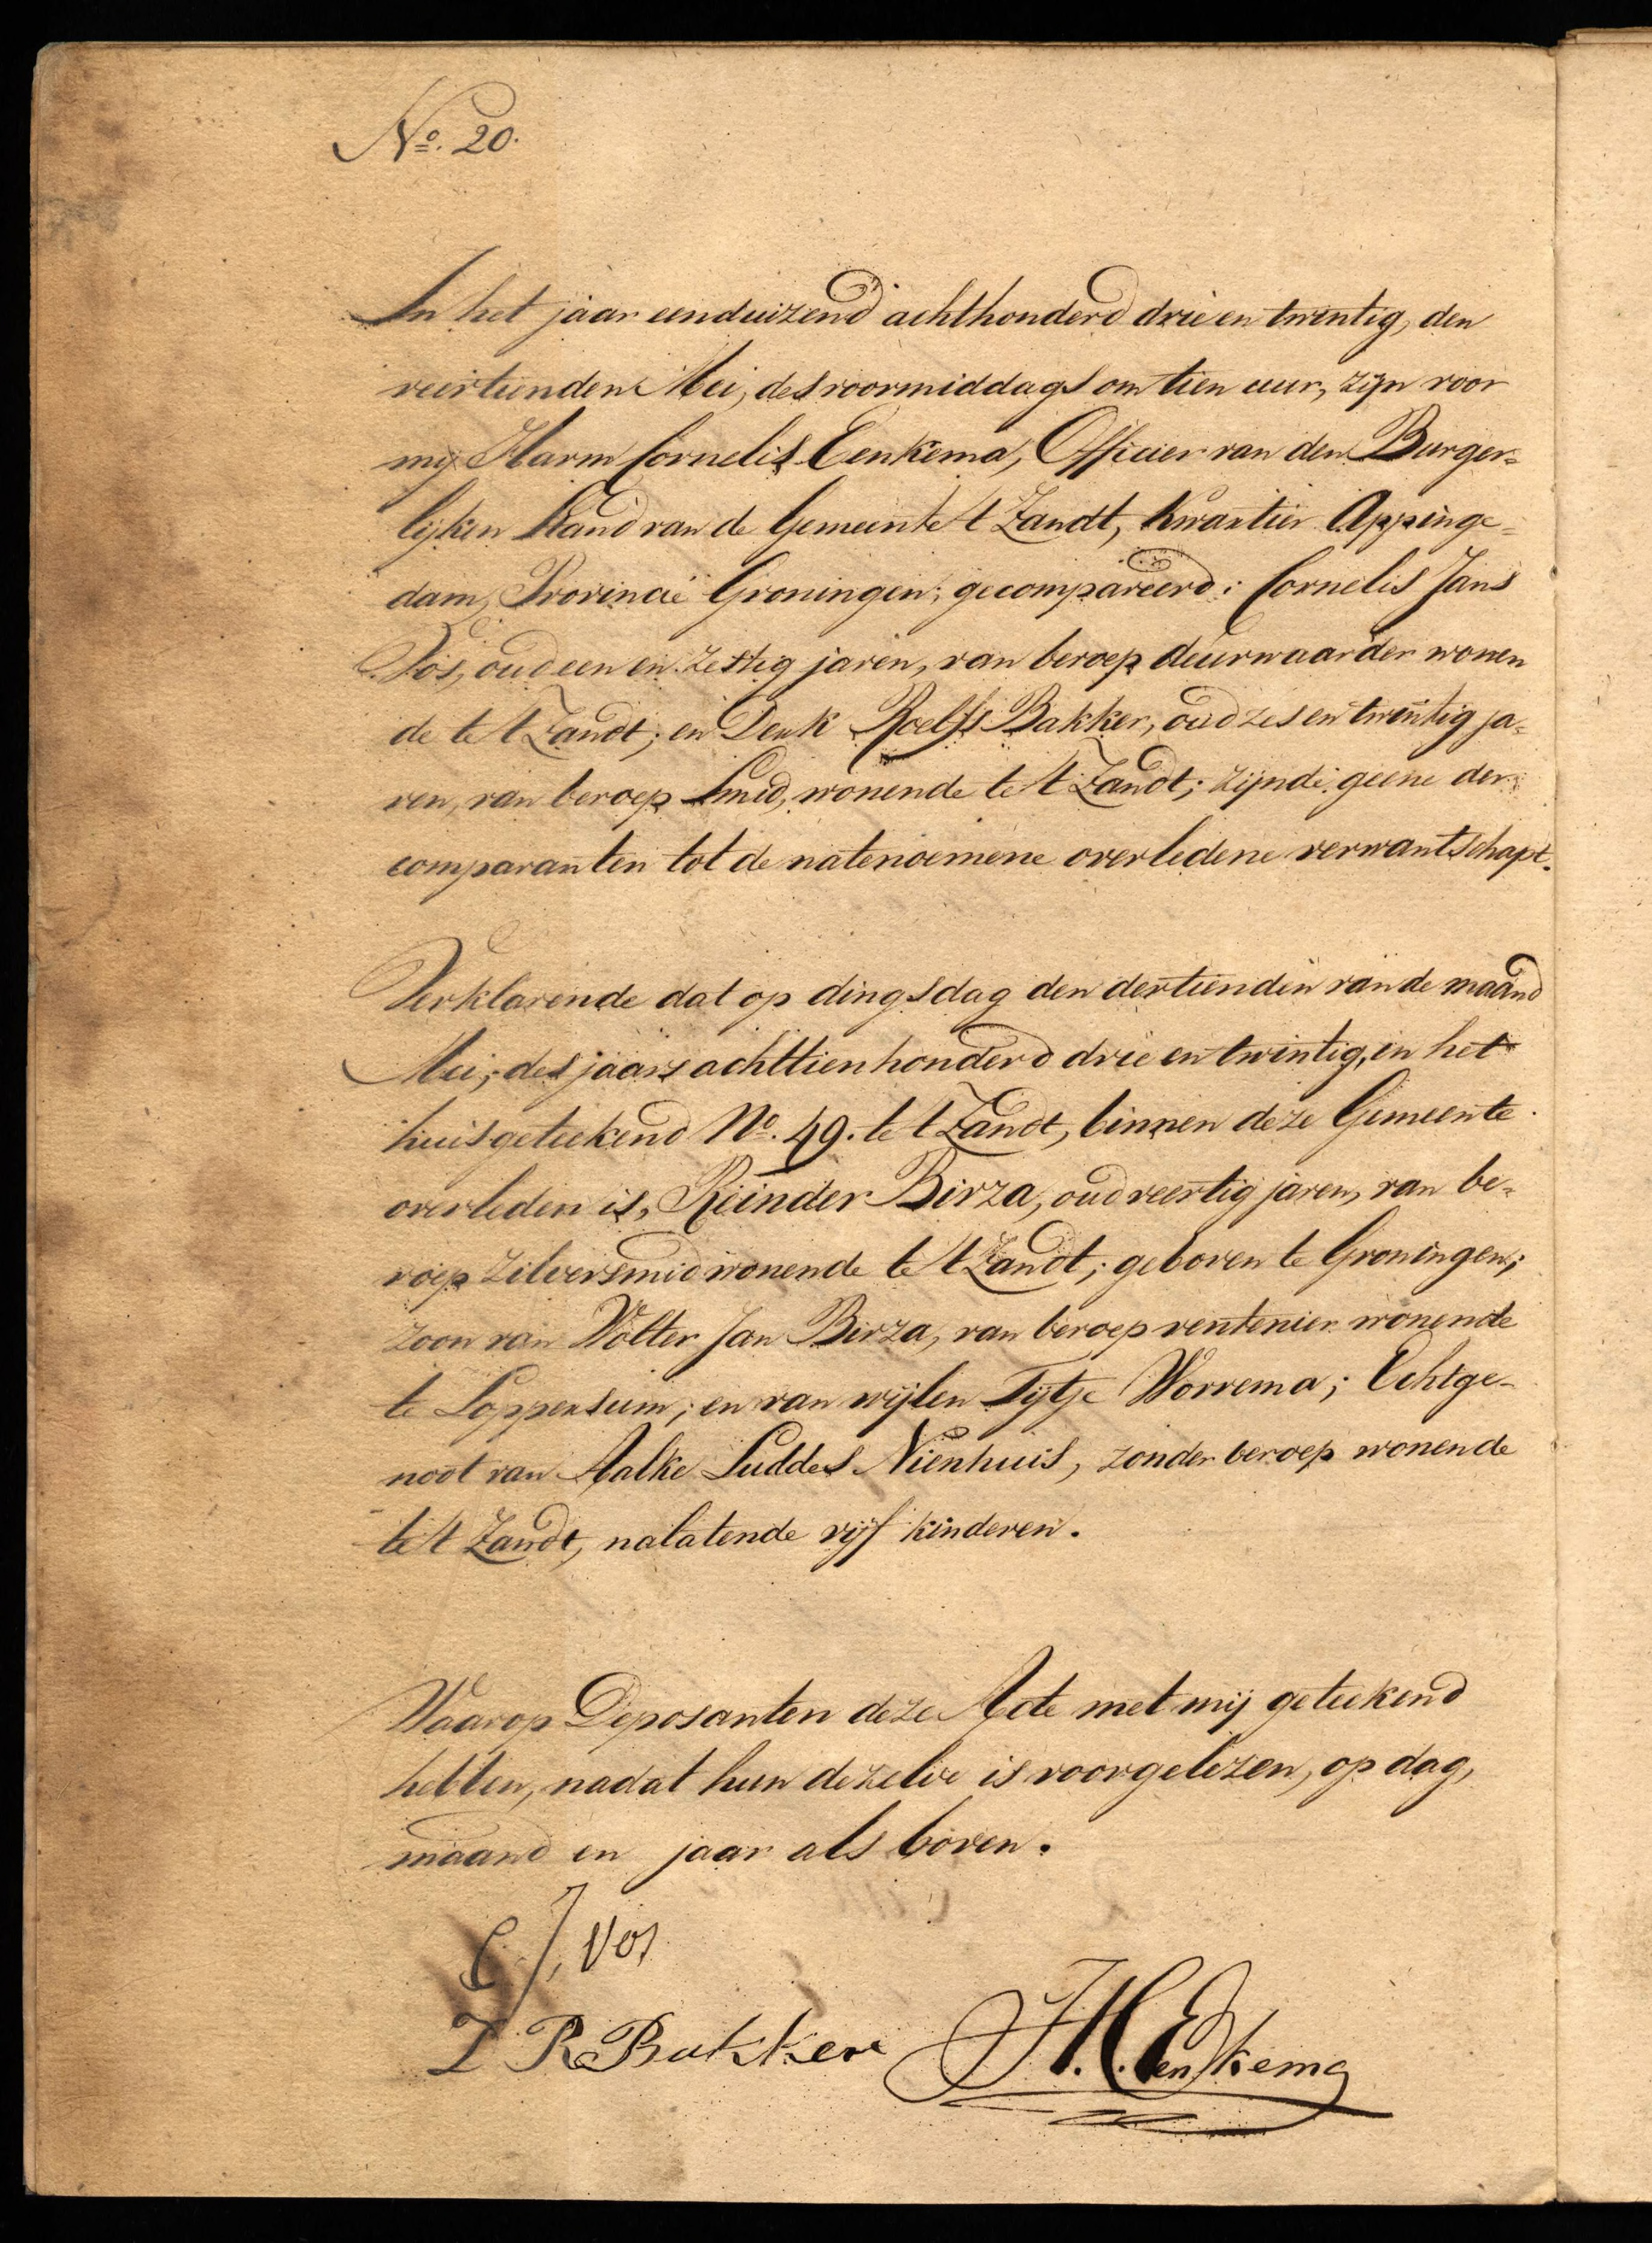 No. 20.
In het jaar eenduizend achthonderd drie en twintig, den
veertienden Mei, des voormiddags om tien uur, zijn voor
mij Harm Cornelis Eenkema, Officier van den Burger=
lijken Stand van de Gemeente 't Zandt, Kwartier Appinge=
dam, Provincie Groningen; gecompareerd: Cornelis Jans
Vos, oud een en zestig jaren, van beroep deurwaarder wonen
de te 't Zandt; en Derk Roelfs Bakker, oud zes en twintig ja=
ren, van beroep Smid, wonende te 't Zandt; zijnde geene der
comparanten tot de natenoemene overledene verwantschapt.
Verklarende dat op dingsdag den dertienden van de maand
Mei, des jaars achttienhonderd drie en twintig, in het
huis geteekend No. 49. te 't Zandt, binnen deze Gemeente
overleden is, Reinder Birza, oud veertig jaren, van be=
roep Zilversmid wonende te 't Zandt; geboren te Groningen;
zoon van Wolter Jan Birza, van beroep rentenier wonende
te Loppersum; en van wijlen Tijtje Worrema; Echtge=
noot van Aalke Luddes Nienhuis, zonder beroep wonende
te 't Zandt, nalatende vijf kinderen.
Waarop Deposanten deze Acte met mij geteekend
hebben, nadat hun dezelve is voorgelezen, op dag,
maand en jaar als boven.
C J, Vos
D R Bakker
H.C. Eenkema